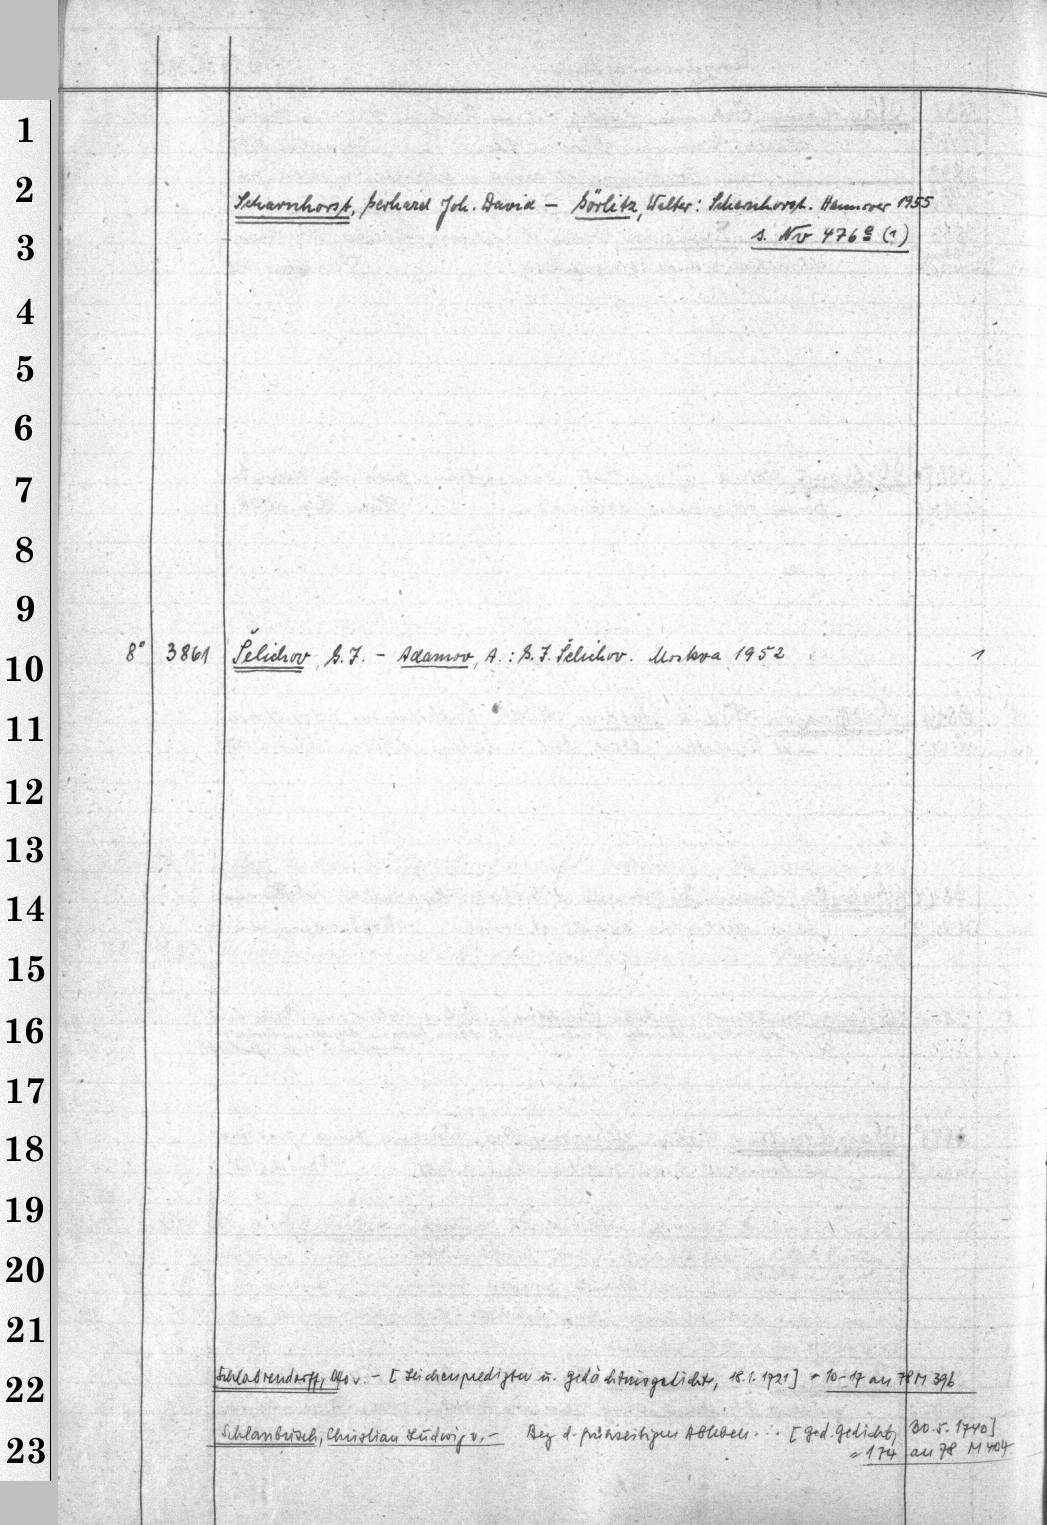 1
2
Scharnhorst, Gerhard Joh. David – Görlitz, Walter: Scharnhorst. Hannover 1955
3
s. Nv 476 (1)
4
5
6
7
8
9
8° 3861 Šelichov, G. I. – Adamov, A.: G. I. Šelichov. Moskva 1952 1
10
11
12
13
14
15
16
17
18
19
20
21
22
Schlabrendorff, v. – [Leichenpredigten u. Gedächtnisgedichte, 18.1.1721] = 10–17 an 78 M 396
Schlanbusch, Christian Ludwig v. – Bey d. frühzeitigen Ableben ... [Ged. Gedicht, 30.5.1740]
23
= 174 an 78 M 404